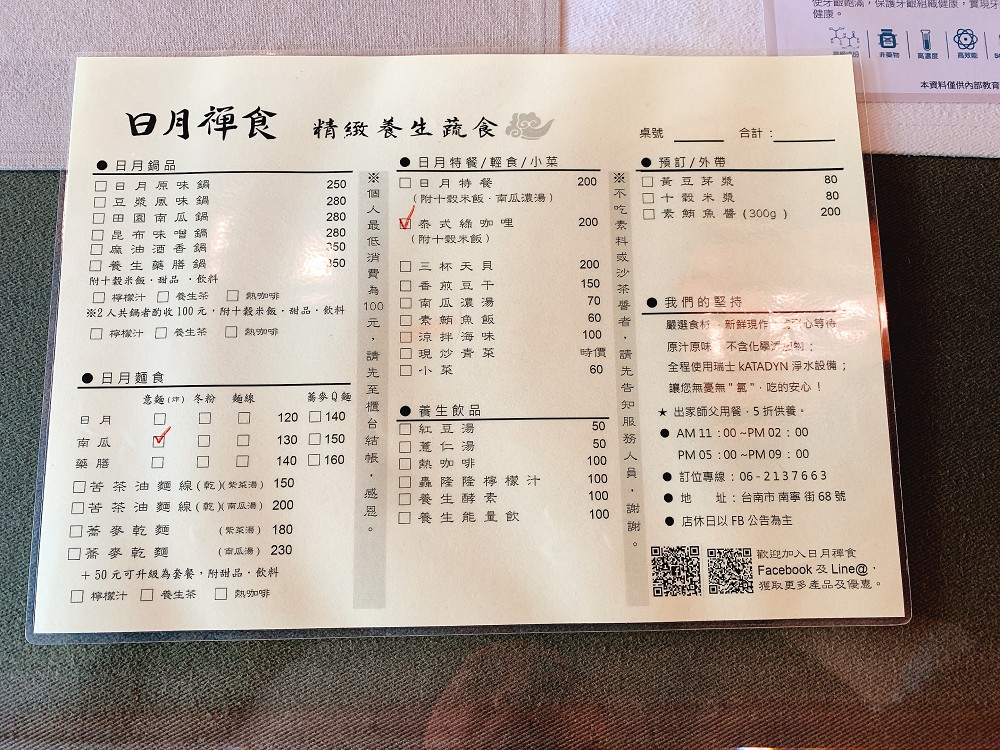 使牙齦飽滿，保護牙齦組織健康，實現牙
健康。
非藥物
高濃度
高效能
本資料僅供內部教育
日月禪食 精緻養生蔬食
桌號 合計：
● 日月鍋品
日月原味鍋 250
豆漿風味鍋 280
田園南瓜鍋 280
昆布味噌鍋 280
麻油酒香鍋 350
養生藥膳鍋 350
附十穀米飯．甜品．飲料
檸檬汁 養生茶 熱咖啡
※2人共鍋者酌收100元，附十穀米飯．甜品．飲料
檸檬汁 養生茶 熱咖啡
● 日月麵食
意麵(炸) 冬粉 麵線 蕎麥Q麵
日月 120 140
南瓜 130 150
藥膳 140 160
苦茶油麵線(乾)(紫菜湯) 150
苦茶油麵線(乾)(南瓜湯) 200
蕎麥乾麵 (紫菜湯) 180
蕎麥乾麵 (南瓜湯) 230
＋50元可升級為套餐，附甜品．飲料
檸檬汁 養生茶 熱咖啡
※個人最低消費為100元，請先至櫃台結帳，感恩。
● 日月特餐/輕食/小菜
日月特餐 200
(附十穀米飯．南瓜濃湯)
泰式綠咖哩 200
(附十穀米飯)
三杯天貝 200
香煎豆干 150
南瓜濃湯 70
素鮪魚飯 60
涼拌海味 100
現炒青菜 時價
小菜 60
● 養生飲品
紅豆湯 50
薏仁湯 50
熱咖啡 100
轟隆隆檸檬汁 100
養生酵素 100
養生能量飲 100
※不吃素料或沙茶醬者，請先告知服務人員，謝謝。
● 預訂/外帶
黃豆芽漿 80
十穀米漿 80
素鮪魚醬（300g） 200
● 我們的堅持
嚴選食材．新鮮現作．心等待
原汁原味．不含化學；
全程使用瑞士kATADYN淨水設備；
讓您無憂無"氯"．吃的安心！
★ 出家師父用餐，5折供養。
● AM 11：00 ~PM 02：00
PM 05：00 ~PM 09：00
● 訂位專線：06-2137663
● 地 址：台南市南寧街68號
● 店休日以FB公告為主
歡迎加入日月禪食
Facebook 及 Line@，
獲取更多產品及優惠。